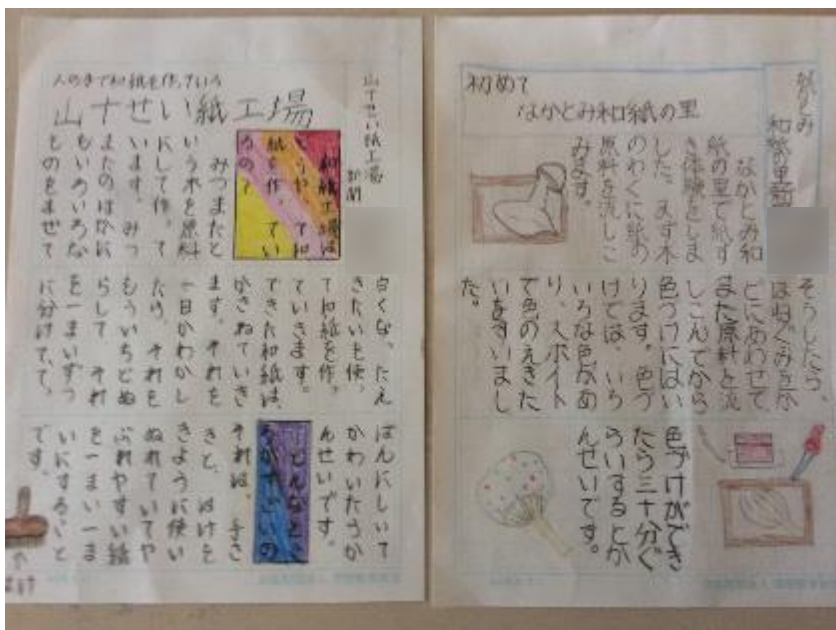 人の手で和紙を作っている
山十せい紙工場
山十せい紙工場
新聞
和紙工場は
どうやって和
紙を作ってい
るの?
みつまたと
いう木を原料
にして作って
います。みつ
またのほかに
もいろいろな
ものをまぜて
白くなったえ
きたいを使っ
て和紙を作っ
ていきます。
できた和紙は、
かさねていき
ます。それを
一日かわかし
たら、それを
もういちどぬ
らして それ
を一まいずつ
に分けてって、
ばんにしいて
かわいたらか
んせいです。
どんなとこ
ろがすごいの
それは、手さ
きと、はけを
きように使い
ぬれていてや
ぶれやすい紙
を一まい一ま
いにするこ
とです。
初めて
なかとみ和紙の里
和紙の里
なかとみ和
紙の里で紙す
き体験をしま
した。まず木
のわくに紙の
原料を流しこ
みます。
そうしたら、
ほねぐみを
どにあわせて
また原料を流
しこんでから
色づけにはい
ります。色づ
けでは、いろ
いろな色があ
り、スポイト
で色のえきた
いをすいまし
た。
色づけができ
たら三十分ぐ
らいするとか
んせいです。